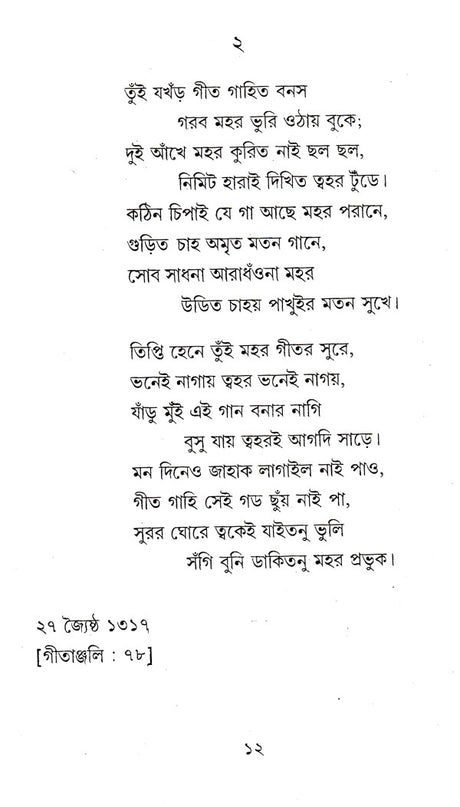 ২
তুঁই যখঁড় গীত গাহিত বনস
গরব মহর ভুরি ওঠায় বুকে;
দুই আঁখে মহর কুরিত নাই ছল ছল,
নিমিট হারাই দিখিত ত্বহর টুঁডে।
কঠিন চিপাই যে গা আছে মহর পরানে,
গুড়িত চাহ অমৃত মতন গানে,
সোব সাধনা আরাধঁওনা মহর
উডিত চাহয় পাখুইর মতন সুখে।
তিপ্তি হেনে তুঁই মহর গীতর সুরে,
ভনেই নাগায় ত্বহর ভনেই নাগয়,
যাঁডু মুঁই এই গান বনার নাগি
বুসু যায় ত্বহরই আগদি সাড়ে।
মন দিনেও জাহাক লাগাইল নাই পাও,
গীত গাহি সেই গড ছুঁয় নাই পা,
সুরর ঘোরে ত্বকেই যাইতনু ভুলি
সঁগি বুনি ডাকিতনু মহর প্রভুক।
২৭ জ্যৈষ্ঠ ১৩১৭
[গীতাঞ্জলি : ৭৮]
১২